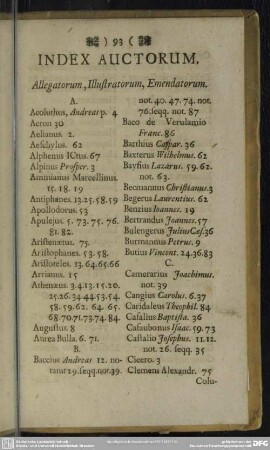 ) 93 (
INDEX AUCTORUM,
Allegatorum, Illustratorum, Emendatorum.
A.
Acoluthus, Andreas p. 4
Acron 30
Aelianus. 2.
Aeschylus. 62
Alphenus ICtus. 67
Alpinus Prosper. 3
Ammianus Marcellinus.
15. 18. 19
Antiphanes. 13. 25. 58. 59
Apollodorus. 53
Apulejus. 5. 73. 75. 76.
81. 82.
Aristenætus. 75.
Aristophanes. 53. 58.
Aristoteles. 13. 64. 65. 66
Arrianus. 15
Athenæus. 3. 4. 13. 15. 20.
25. 26. 34. 44. 53. 54.
58. 59. 62. 64. 65.
68. 70. 71. 73. 74. 84.
Augustus. 8
Aurea Bulla. 6. 71.
B.
Baccius Andreas 12. no-
tatur 29. seqq. not. 39.
not. 40. 47. 74. not.
76. seqq. not. 87
Baco de Verulamio
Franc. 86
Barthius Caspar. 36
Baxterus Wilhelmus. 62
Bayfius Lazarus. 59. 62.
not. 63.
Becmannus Christianus. 3
Begerus Laurentius. 62
Benzius Ioannes. 19
Bertrandus Joannes. 57
Bulengerus Julius Cæs. 36
Burmannus Petrus. 9
Butius Vincent. 24. 36. 83
C.
Camerarius Joachimus.
not. 39
Cangius Carolus. 6. 37
Caridaleus Theophil. 84
Casalius Baptista. 36
Casaubonus Isaac. 59. 73
Castalio Josephus. 11. 12.
not. 26. seqq. 35
Cicero. 3
Clemens Alexandr. 75
Colu-